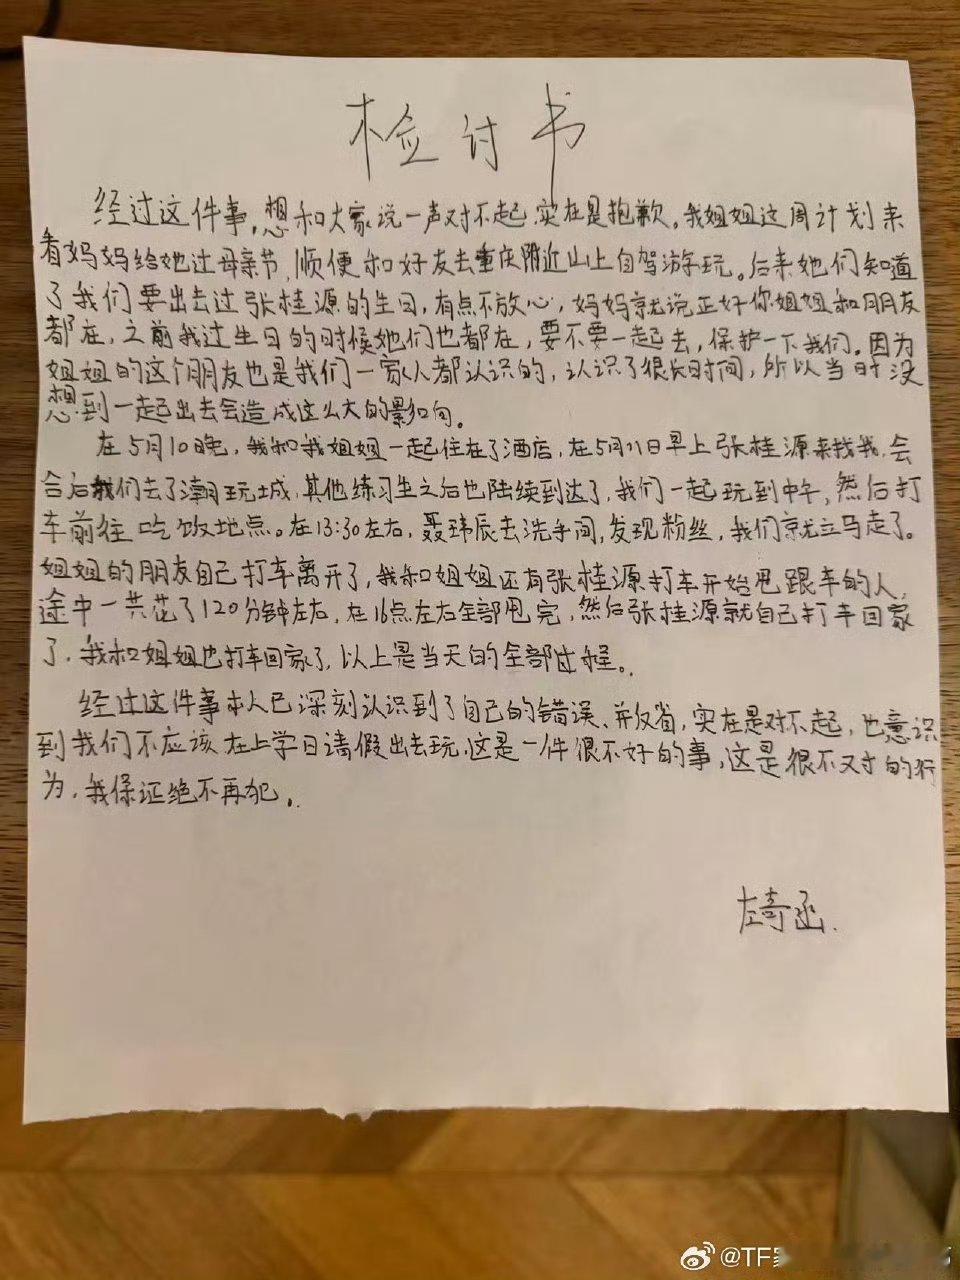 检讨书
经过这件事,想和大家说一声对不起,实在是抱歉。我姐姐这周计划来
看妈妈给她过母亲节,顺便和好友去重庆附近山上自驾游玩。后来她们知道
了我们要出去过张桂源的生日,有点不放心,妈妈就说正好你姐姐和朋友
都在,之前我过生日的时候她们也都在,要不要一起去,保护一下我们。因为
姐姐的这个朋友也是我们一家人都认识的,认识了很长时间,所以当时没
想到一起出去会造成这么大的影响。
在5月10晚,我和我姐姐一起住在了酒店,在5月11日早上张桂源来找我,会
合后我们去了潮玩城,其他练习生之后也陆续到达了,我们一起玩到中午,然后打
车前往吃饭地点。在13:30左右,聂玮辰去洗手间,发现粉丝,我们就立马走了。
姐姐的朋友自己打车离开了,我和姐姐还有张桂源打车开始甩跟车的人,
途中一共花了120分钟左右,在16点左右全部甩完,然后张桂源就自己打车回家
了,我和姐姐也打车回家了,以上是当天的全部过程。
经过这件事本人已深刻认识到了自己的错误、并反省,实在是对不起,也意识
到我们不应该在上学日请假出去玩,这是一件很不好的事,这是很不对的行
为,我保证绝不再犯。
左奇函.
@TF